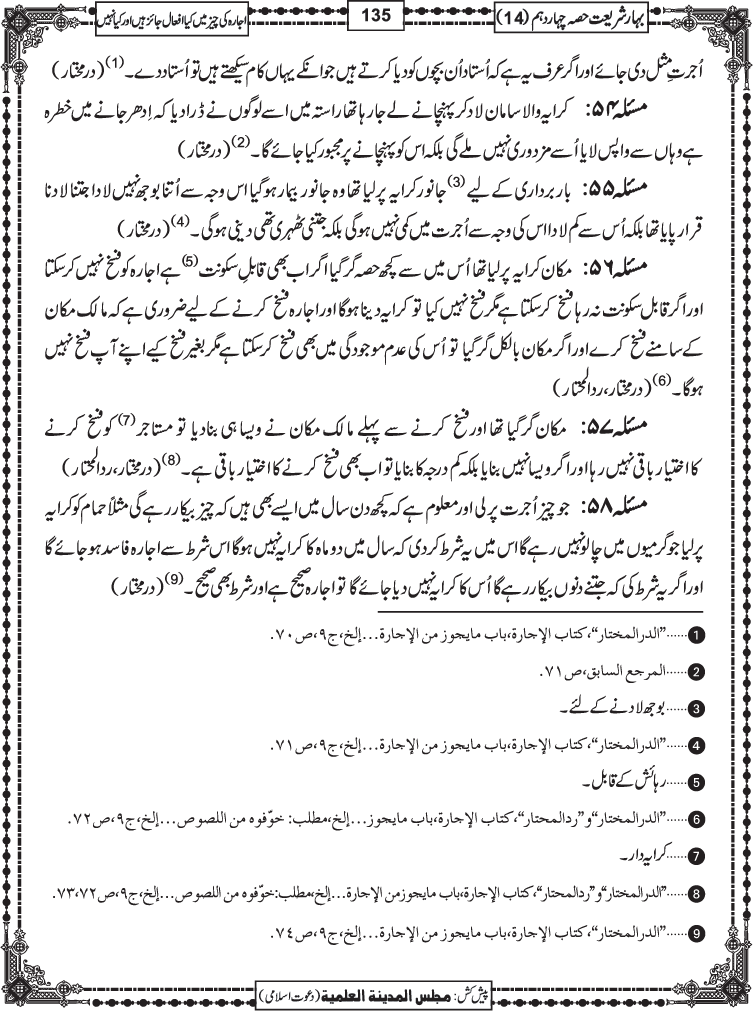 بہارِ شریعت حصہ چہاردہم (14)
135
اجارہ کی چیز میں کیا افعال جائز ہیں اور کیا نہیں
اُجرتِ مثل دی جائے اور اگر عرف یہ ہے کہ اُستاد اُن بچوں کو دیا کرتے ہیں جو انکے یہاں کام سیکھتے ہیں تو اُستاد دے۔(1) (درمختار)
مسئلہ ۵۴: کرایہ والا سامان لاد کر پہنچانے لے جارہا تھا راستہ میں اسے لوگوں نے ڈرا دیا کہ اِدھر جانے میں خطرہ
ہے وہاں سے واپس لایا اُسے مزدوری نہیں ملے گی بلکہ اس کو پہنچانے پر مجبور کیا جائے گا۔(2) (درمختار)
مسئلہ ۵۵: بار برداری کے لیے(3) جانور کرایہ پر لیا تھا وہ جانور بیمار ہوگیا اس وجہ سے اُتنا بوجھ نہیں لادا جتنا لادنا
قرار پایا تھا بلکہ اُس سے کم لادا اس کی وجہ سے اُجرت میں کمی نہیں ہوگی بلکہ جتنی ٹھہری تھی دینی ہوگی۔(4) (درمختار)
مسئلہ ۵۶: مکان کرایہ پر لیا تھا اُس میں سے کچھ حصہ گر گیا اگر اب بھی قابلِ سکونت(5) ہے اجارہ کو فسخ نہیں کرسکتا
اور اگر قابل سکونت نہ رہا فسخ کرسکتا ہے مگر فسخ نہیں کیا تو کرایہ دینا ہوگا اور اجارہ فسخ کرنے کے لیے ضروری ہے کہ مالک مکان
کے سامنے فسخ کرے اور اگر مکان بالکل گر گیا تو اُس کی عدم موجودگی میں بھی فسخ کرسکتا ہے مگر بغیر فسخ کیے اپنے آپ فسخ نہیں
ہوگا۔(6) (درمختار، ردالمحتار)
مسئلہ ۵۷: مکان گر گیا تھا اور فسخ کرنے سے پہلے مالک مکان نے ویسا ہی بنا دیا تو مستاجر(7) کو فسخ کرنے
کا اختیار باقی نہیں رہا اور اگر ویسا نہیں بنایا بلکہ کم درجہ کا بنایا تو اب بھی فسخ کرنے کا اختیار باقی ہے۔(8) (درمختار، ردالمحتار)
مسئلہ ۵۸: جو چیز اُجرت پر لی اور معلوم ہے کہ کچھ دن سال میں ایسے بھی ہیں کہ چیز بیکار رہے گی مثلاً حمام کو کرایہ
پر لیا جو گرمیوں میں چالو نہیں رہے گا اس میں یہ شرط کردی کہ سال میں دو ماہ کا کرایہ نہیں ہوگا اس شرط سے اجارہ فاسد ہوجائے گا
اور اگر یہ شرط کی کہ جتنے دنوں بیکار رہے گا اُس کا کرایہ نہیں دیا جائے گا تو اجارہ صحیح ہے اور شرط بھی صحیح۔(9) (درمختار)
1......"الدرالمختار"، کتاب الإجارة،باب مایجوز من الإجارة...إلخ،ج۹،ص۷۰.
2......المرجع السابق،ص۷۱.
3......بوجھ لادنے کے لئے۔
4......"الدرالمختار"، کتاب الإجارة،باب مایجوز من الإجارة...إلخ،ج۹،ص۷۱.
5......رہائش کے قابل۔
6......"الدرالمختار"و"ردالمحتار"،کتاب الإجارة،باب مایجوز...إلخ،مطلب: خوّفوہ من اللصوص...إلخ،ج۹،ص۷۲.
7......کرایہ دار۔
8......"الدرالمختار"و"ردالمحتار"، کتاب الإجارة،باب مایجوزمن الإجارة...إلخ،مطلب:خوّفوہ من اللصوص...إلخ،ج۹،ص۷۲،۷۳.
9......"الدرالمختار"، کتاب الإجارة،باب مایجوز من الإجارة...إلخ،ج۹،ص۷٤.
پیش کش: مجلس المدینة العلمیة (دعوت اسلامی)